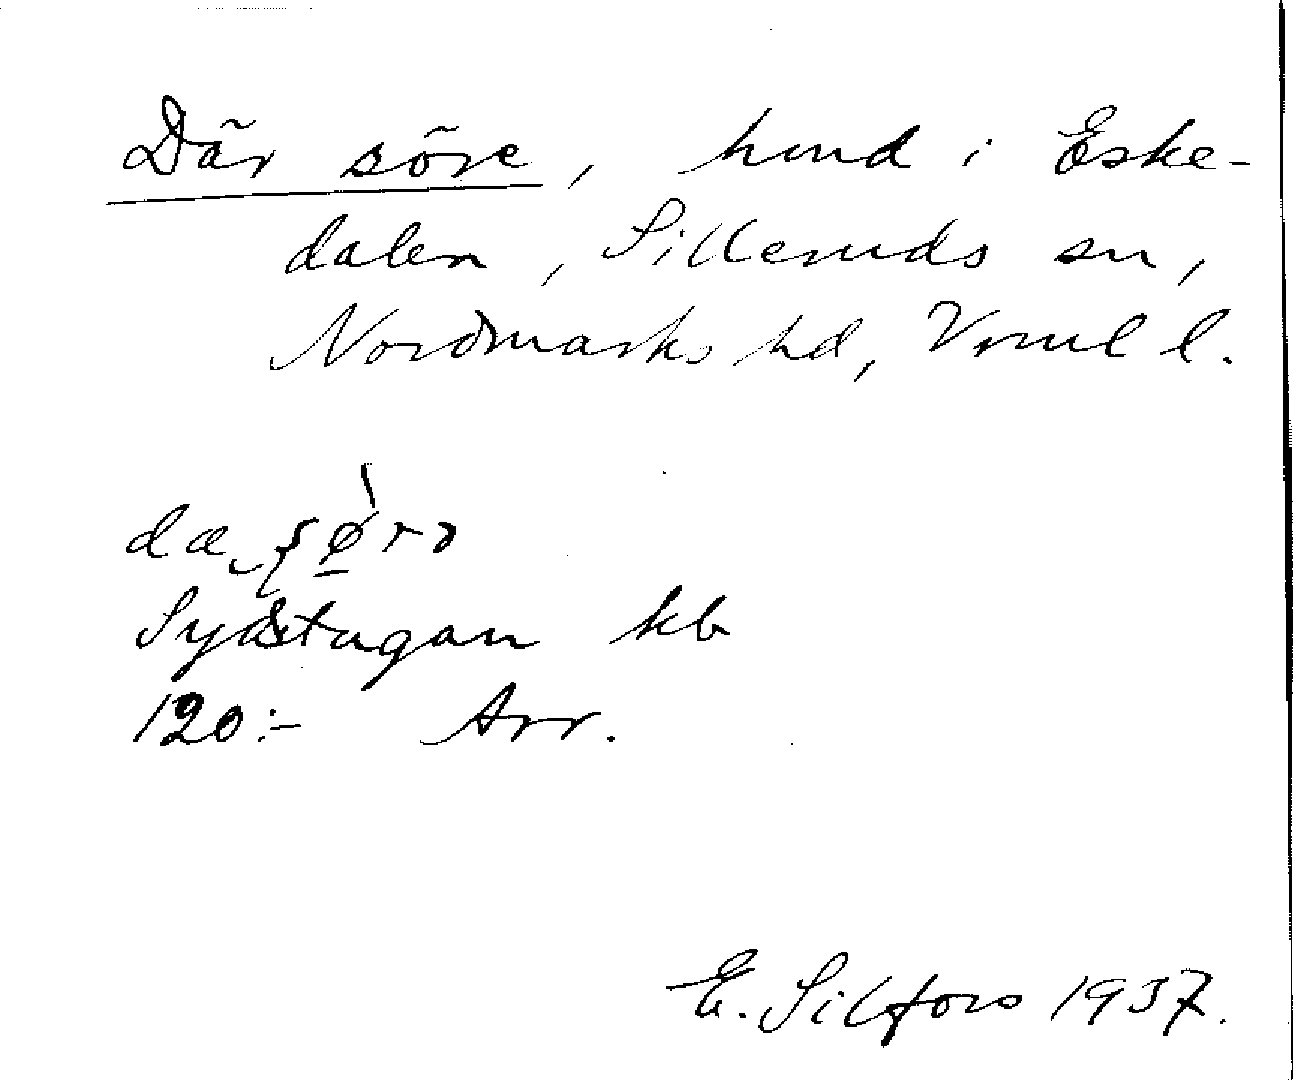 Där söre, hmd i Eske-
dalen, Silleruds sn,
Nordmarks hd, Vrml l.
Sydstugan kb
120:- Arr.
E. Silfors 1937.